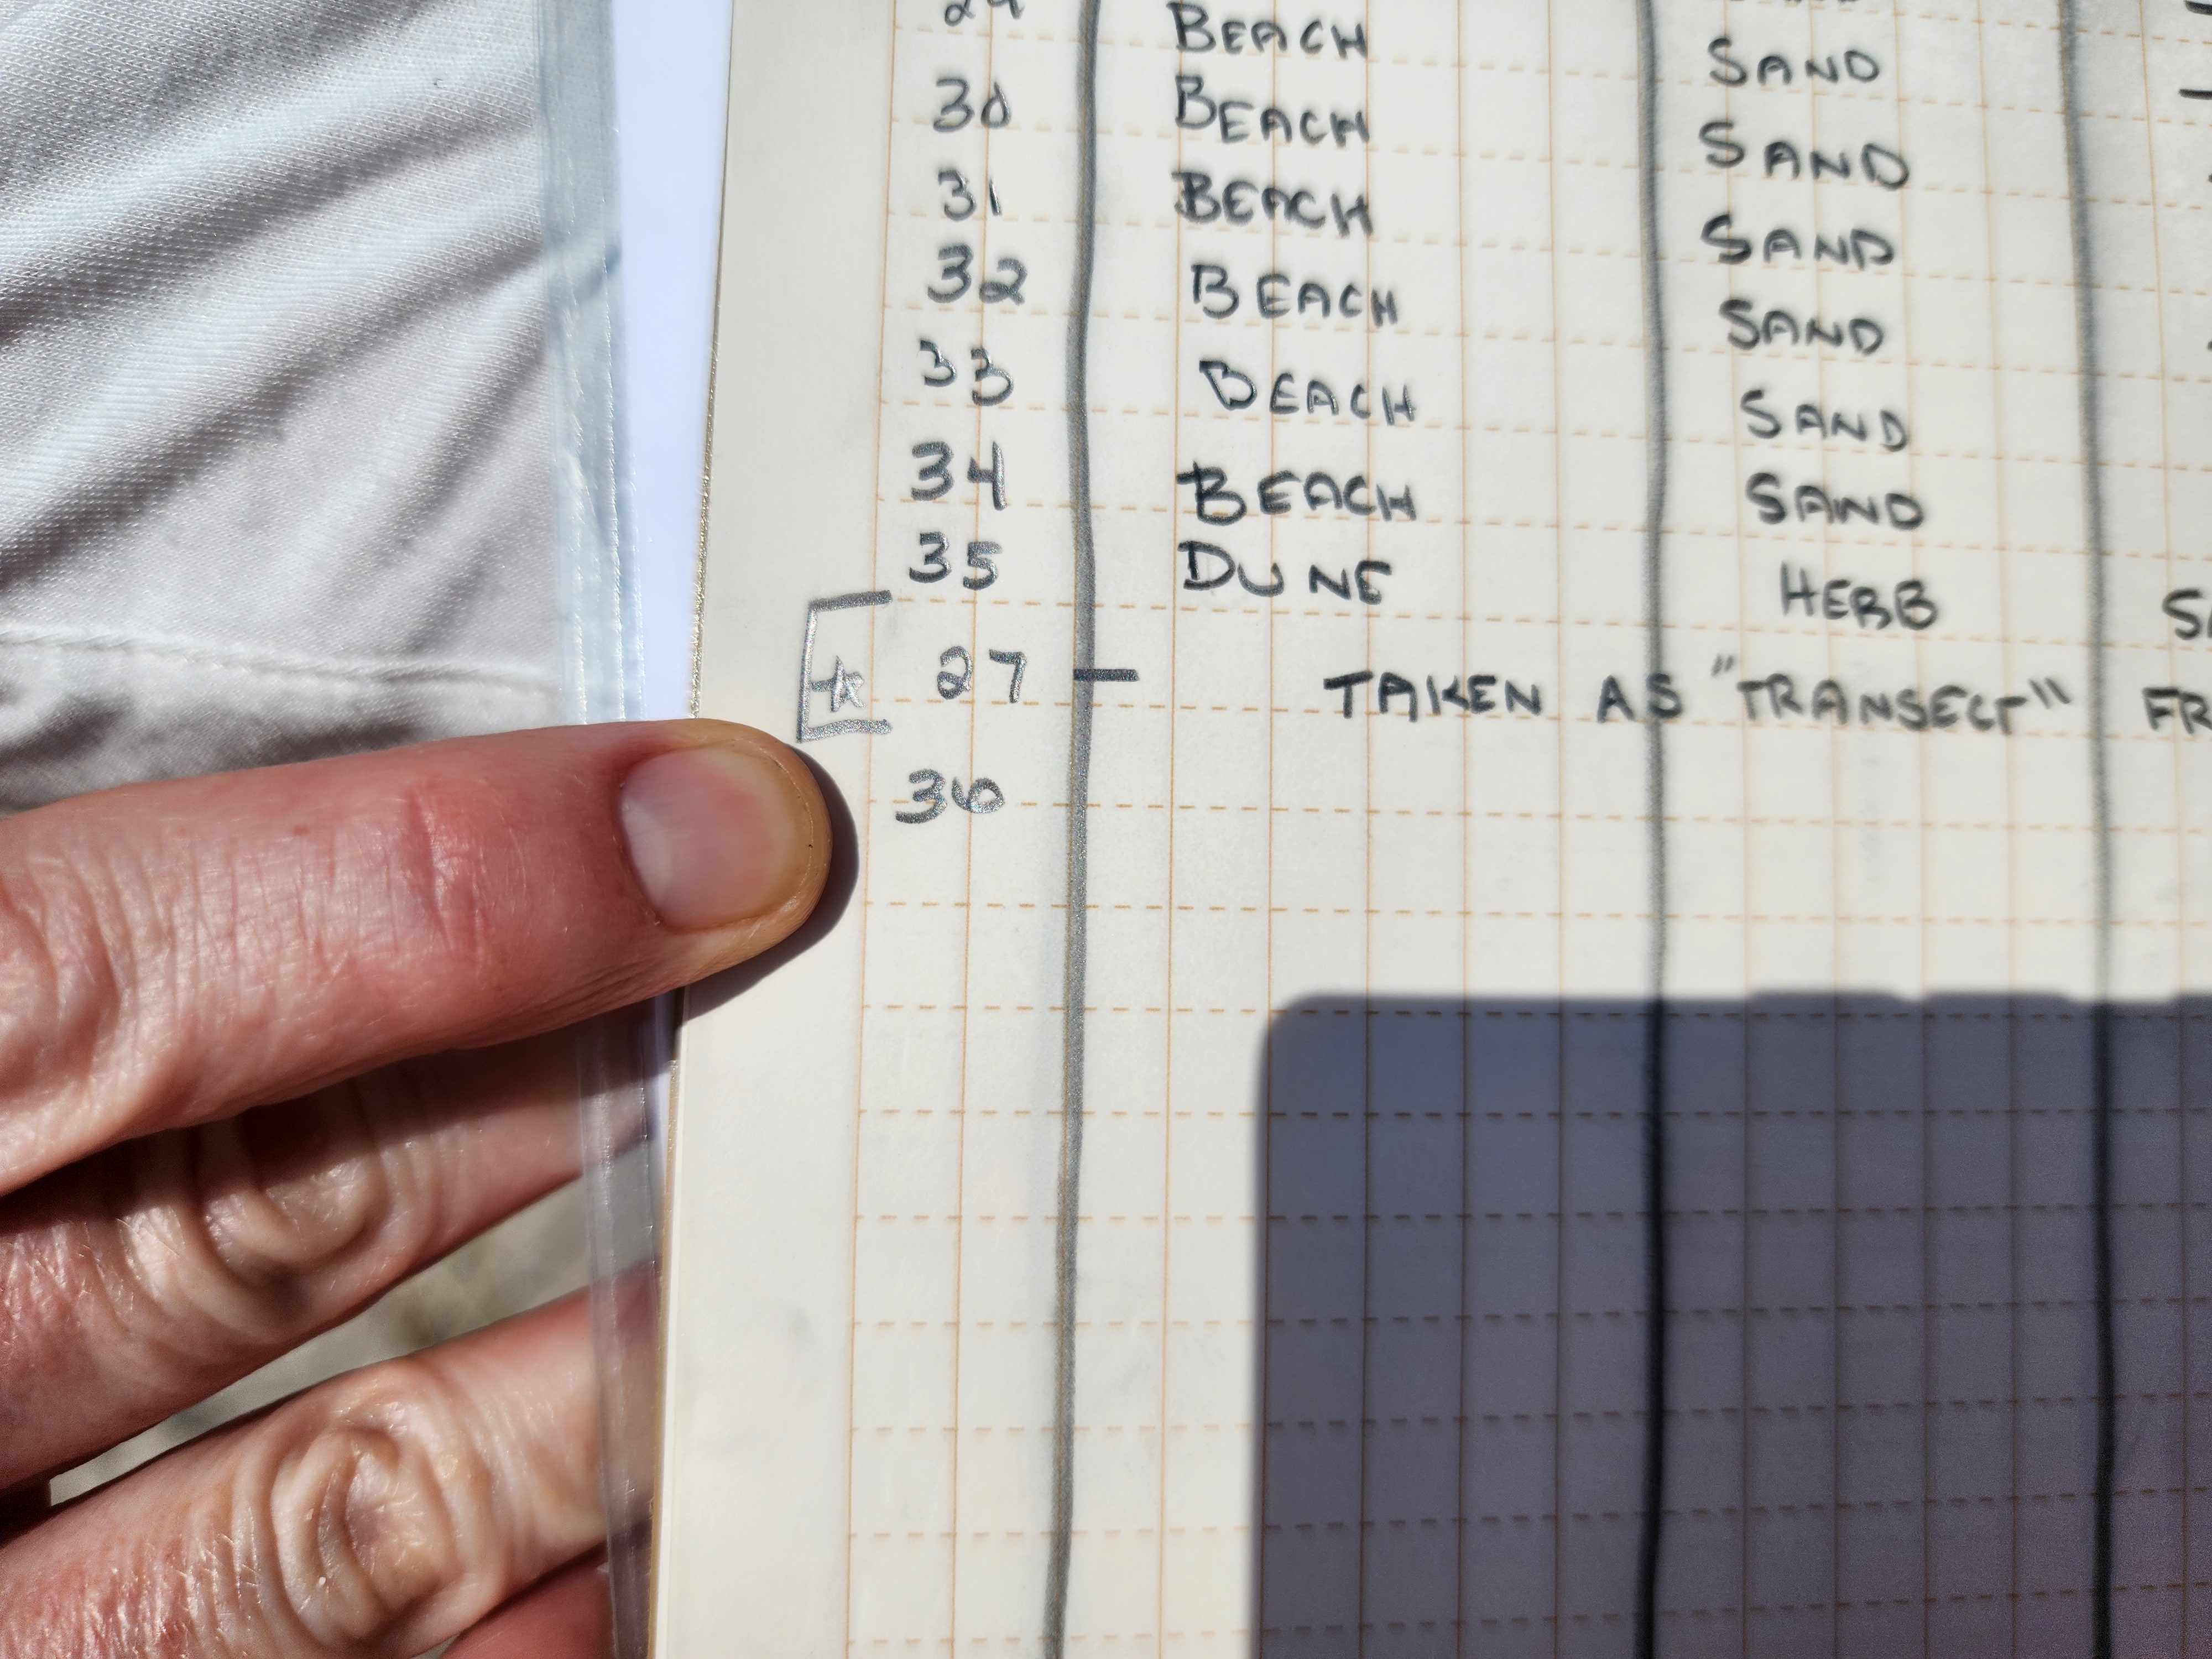 29 BEACH SAND
30 BEACH SAND
31 BEACH SAND
32 BEACH SAND
33 BEACH SAND
34 BEACH SAND
35 DUNE HERB
27 — TAKEN AS "TRANSECT" FR
36